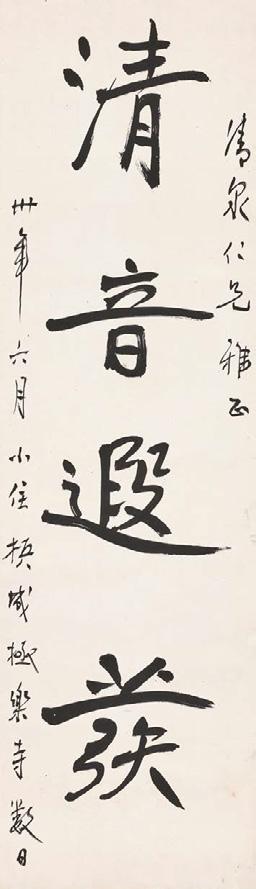 清泉仁兄雅正
清音遐發
卅年六月小住梹城極樂寺數日